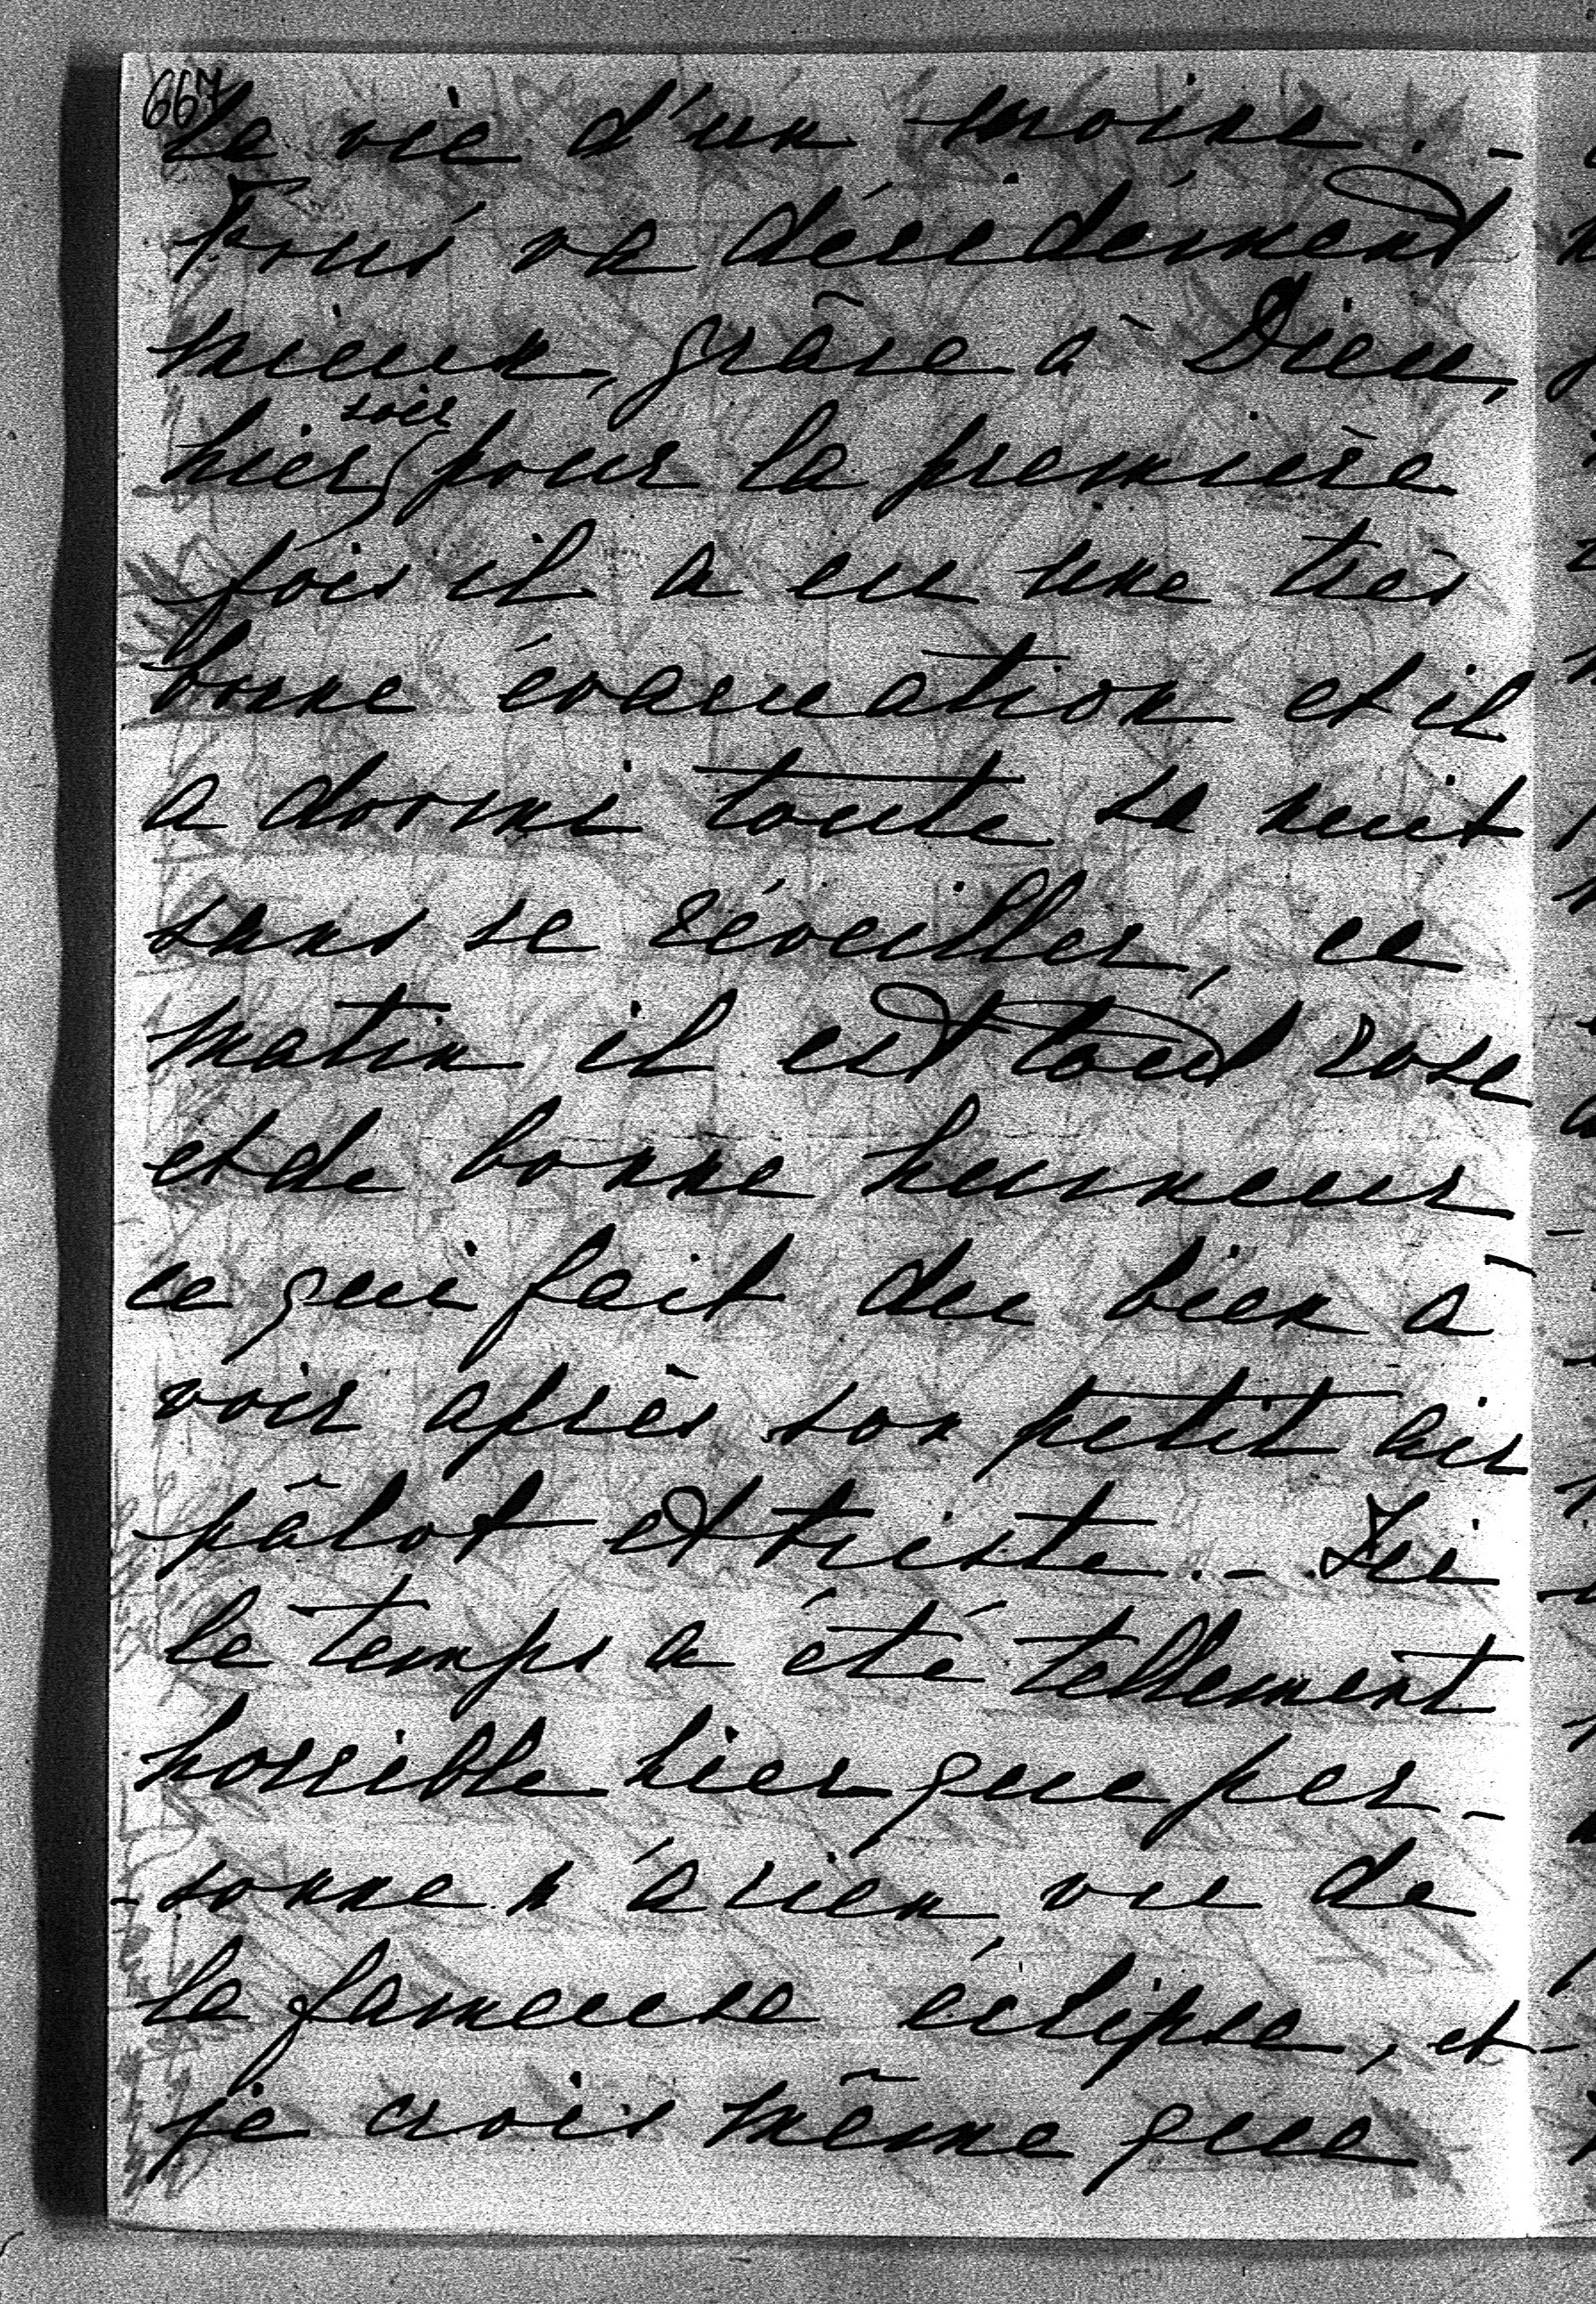 667
la vie d'un moine. -
Toús va décidément
mieux, grâce à Dieu,
soir
hier pour la première
fois il a eu une très
bonne évacuation et il
a dormi toute la nuit
sans se réveiller, ce
matin il est tout rose
et de bonne humeur
ce qui fait du bien à
voir après son petit air
pâlot et triste. - Ici
le temps a été tellement
horrible hier que per-
-sonne n'a rien vu de
la fameuse éclipse, et
je crois même que